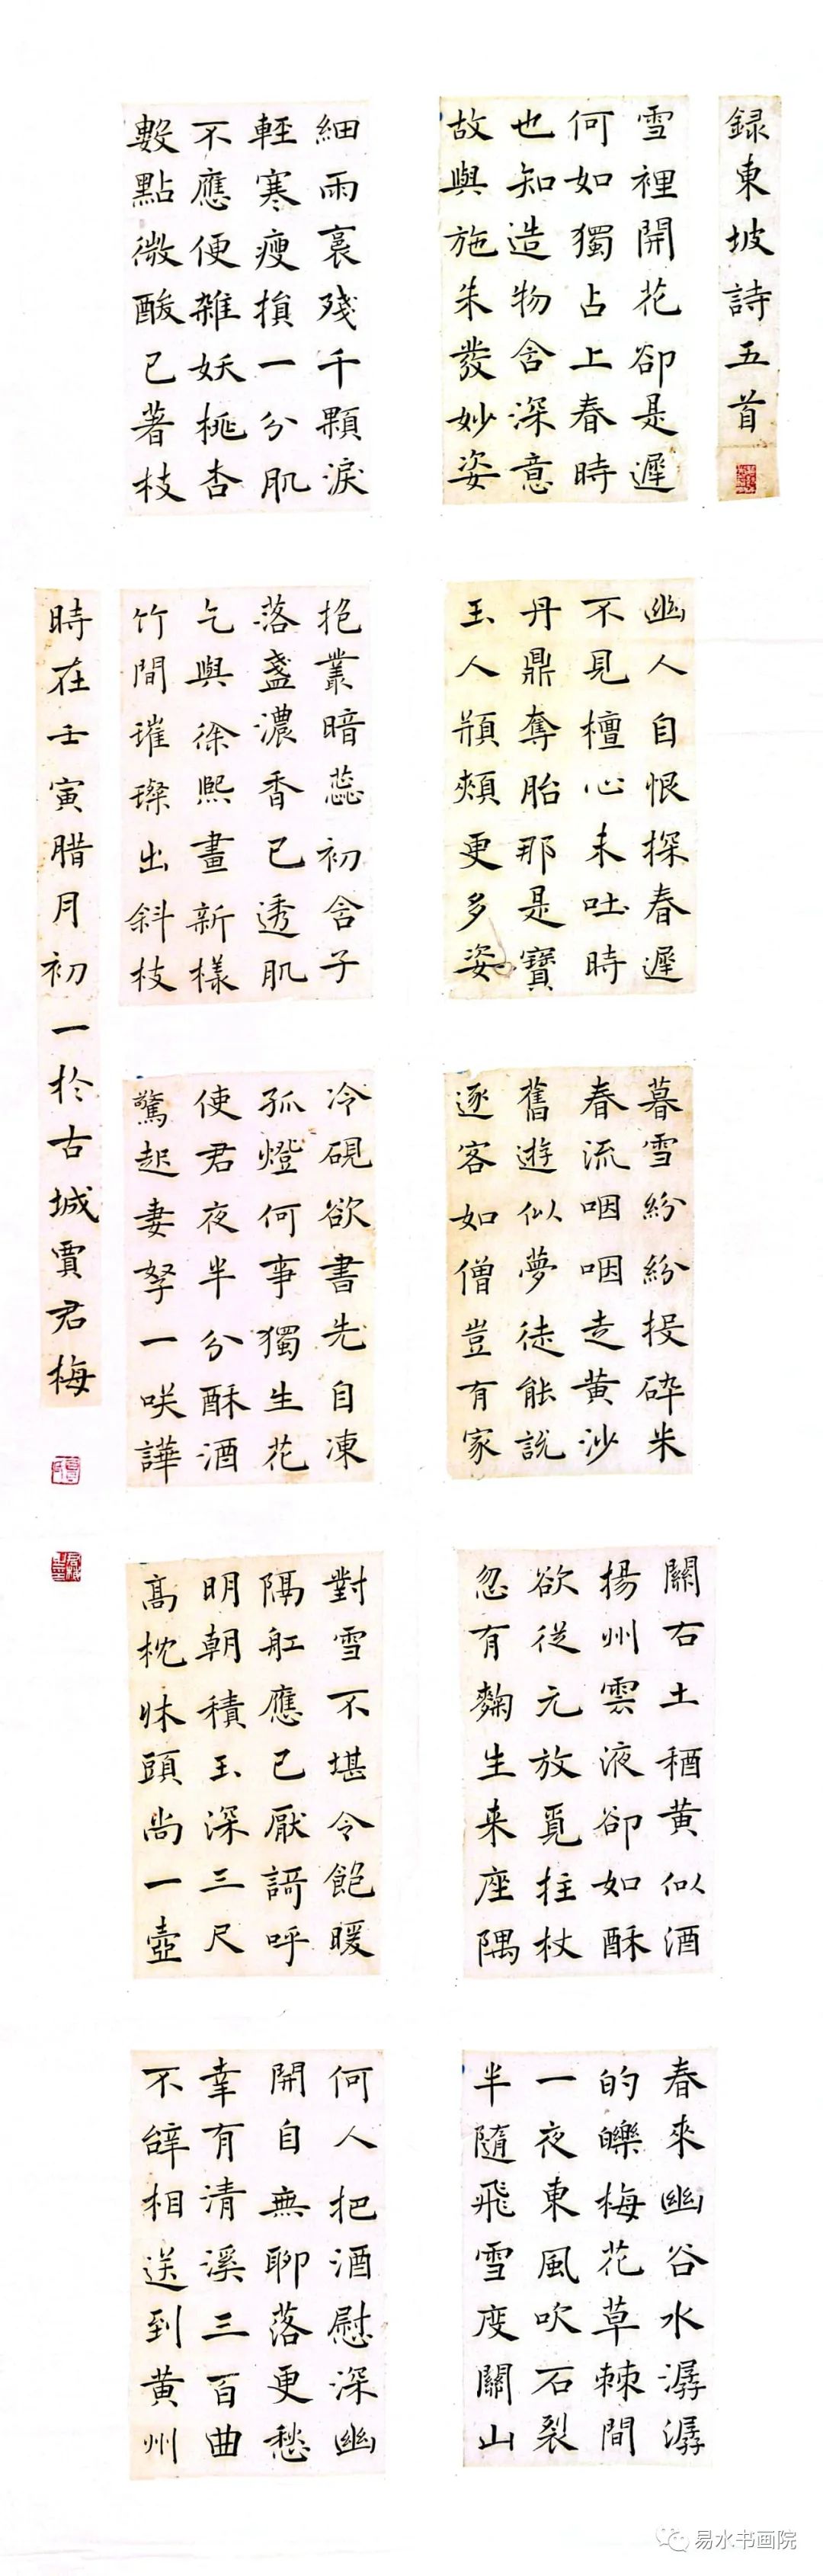 録東坡詩五首
雪裡開花卻是遲
何如獨占上春時
也知造物含深意
故與施朱發妙姿
幽人自恨探春遲
不見檀心未吐時
丹鼎奪胎那是寶
玉人頩頰更多姿
暮雪紛紛投碎米
春流咽咽走黃沙
舊遊似夢徒能說
逐客如僧豈有家
關右土酥黃似酒
揚州雲液卻如酥
欲從元放覓拄杖
忽有麴生來座隅
春來幽谷水潺潺
的皪梅花草棘間
一夜東風吹石裂
半隨飛雪度關山
細雨裛殘千顆淚
輕寒瘦損一分肌
不應便雜妖桃杏
數點微酸已著枝
抱叢暗蕊初含子
落盞濃香已透肌
乞與徐熙畫新樣
竹間璀璨出斜枝
冷硯欲書先自凍
孤燈何事獨生花
使君夜半分酥酒
驚起妻孥一笑譁
對雪不堪令飽暖
隔舡應已厭謌呼
明朝積玉深三尺
高枕牀頭尚一壺
何人把酒慰深幽
開自無聊落更愁
幸有清溪三百曲
不辭相送到黃州
時在壬寅腊月初一於古城賈君梅
易水书画院